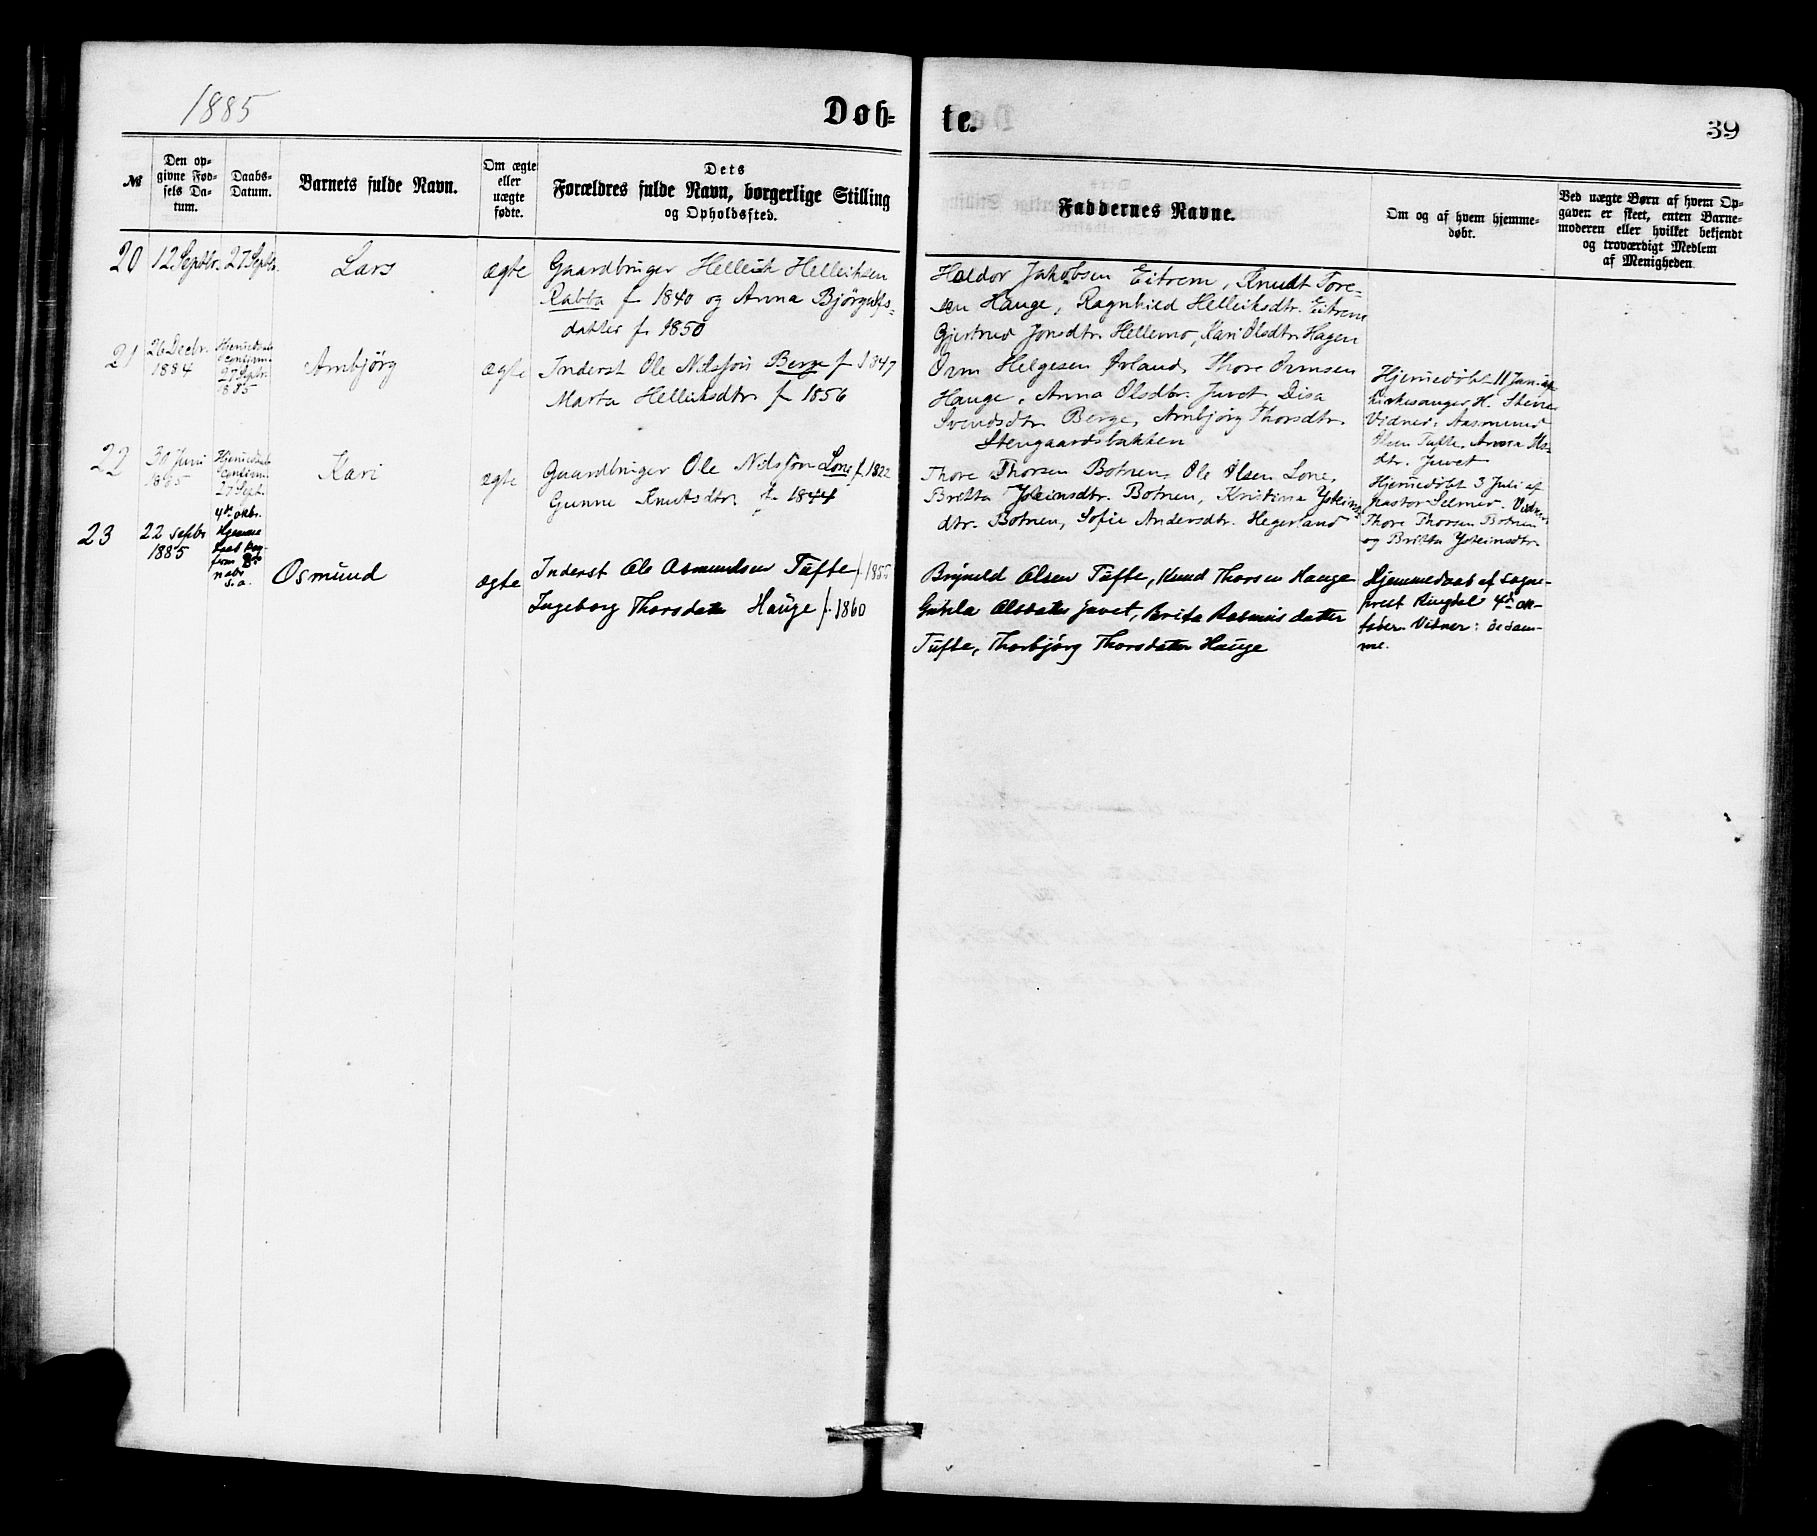 1885
Døb-
te.
39
№
Den op-
givne Fød-
sels Da-
tum.
Daabs-
Datum.
Barnets fulde Navn.
Om ægte
eller
uægte
fødte.
Dets
Forældres fulde Navn, borgerlige Stilling
og Opholdssted.
Faddernes Navne.
Om og af hvem hjemme-
døbt.
Ved uægte Børn af hvem Op-
gaven er skeet, enten Barne-
moderen eller hvilket bekjendt
og troværdigt Medlem
af Menigheden.
20
12 Septbr.
27 Septbr.
Lars
ægte
Gaardbruger Helleik Helleiksen
Rabba f. 1840 og Anna Bjørgulfs-
datter f. 1850
Haldor Jakobsen Eitrem, Knudt Tore-
sen Hauge, Ragnhild Helleiksdtr. Eitrem
Gjertrud Jonsdtr. Hellemo, Kari Olsdtr. Hagen
21
26 Decbr.
1884
27 Septbr.
1885
Arnbjørg
ægte
Inderst Ole Nilsson Berge f. 1847
Marta Helleiksdtr. f. 1856
Orm Helgesen Ørland, Thore Ormsen
Hauge, Anna Olsdtr. Juvet, Disa
Svendsdtr. Berge, Arnbjørg Thorsdtr.
Stengaardsbakken
Hjemmedøbt 11 Jan. af
kirkesanger H. Stene
Vidner: Aasmund
Olsen Tufte, Anna
dtr. Juvet
22
30 Juni
1885
27 Sept.
Kari
ægte
Gaardbruger Ole Nilsson Lone f. 1822
Gunne Knutsdtr. f. 1844
Thore Thorsen Botnen, Ole Olsen Lone,
Britta Ysteinsdtr. Botnen, Kristina Ysteins-
dtr. Botnen, Sofie Andersdtr. Hegerland
Hjemmedøbt 3 Juli af
pastor Selmer. Vidner
Thore Thorsen Botnen
og Britta Ysteinsdtr.
23
22 septbr
1885
4de oktbr.
Hjemme
daab
s. a.
Osmund
ægte
Inderst Ole Asmundsen Tufte f. 1855
Ingeborg Thorsdatter Hauge f. 1860
Brynild Olsen Tufte, Knud Thorsen Hauge
Guhla Olsdatter Juvet, Brita Rasmusdatter
Tufte, Thorbjørg Thorsdatter Hauge
Hjemmedaab af sogne-
prest Ringdal 4de ok-
tober. Vidner: desam-
me.